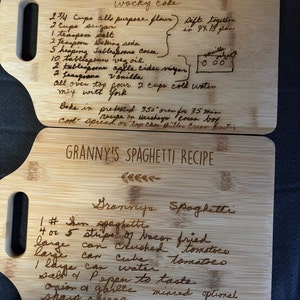 wacky cake
2 1/4 cups all purpose flour
2 cups sugar
1 teaspoon salt
2 teaspoon baking soda
5 heaping tablespoons cocoa
Sift together
in 9x13 pan
10 tablespoons veg oil
2 tablespoons apple cider vinegar
2 teaspoons vanilla
all over top pour 2 cups cold water
mix with fork
Bake in preheated 350° oven for 35 min
Recipe on Hershey's cocoa box
cool spread on top choc Butter Cream frosting
GRANNY'S SPAGHETTI RECIPE
Granny's Spaghetti
1 # thin spaghetti
4 or 5 strips of bacon fried
large can crushed tomatoes
large can cube tomatoes
1 large can water
salt & pepper to taste
onion & garlic minced optional
sharp cheese